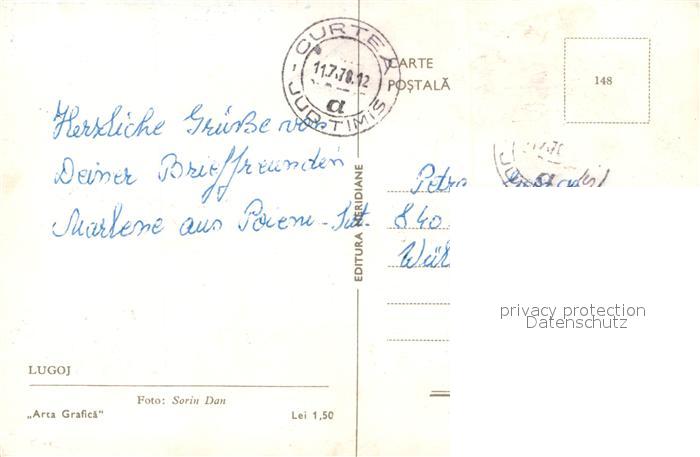 CURTEA
11.7.78.12
a
JUD. TIMIȘ
CARTE
POȘTALĂ
148
Herzliche Grüße von
Deiner Brieffreundin
Marlene aus Poieni-
EDITURA MERIDIANE
Petra
840
privacy protection
Datenschutz
LUGOJ
Foto: Sorin Dan
„Arta Grafică”
Lei 1,50